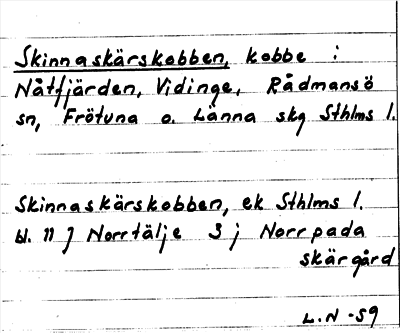 Skinnaskärskobben, kobbe i
Nåtfjärden, Vidinge, Rådmansö
sn, Frötuna o. Länna skg Sthlms l.
Skinnaskärskobben, ek Sthlms l.
bl. 11 J Norrtälje 3 j Norrpada
skärgård
L.N -59